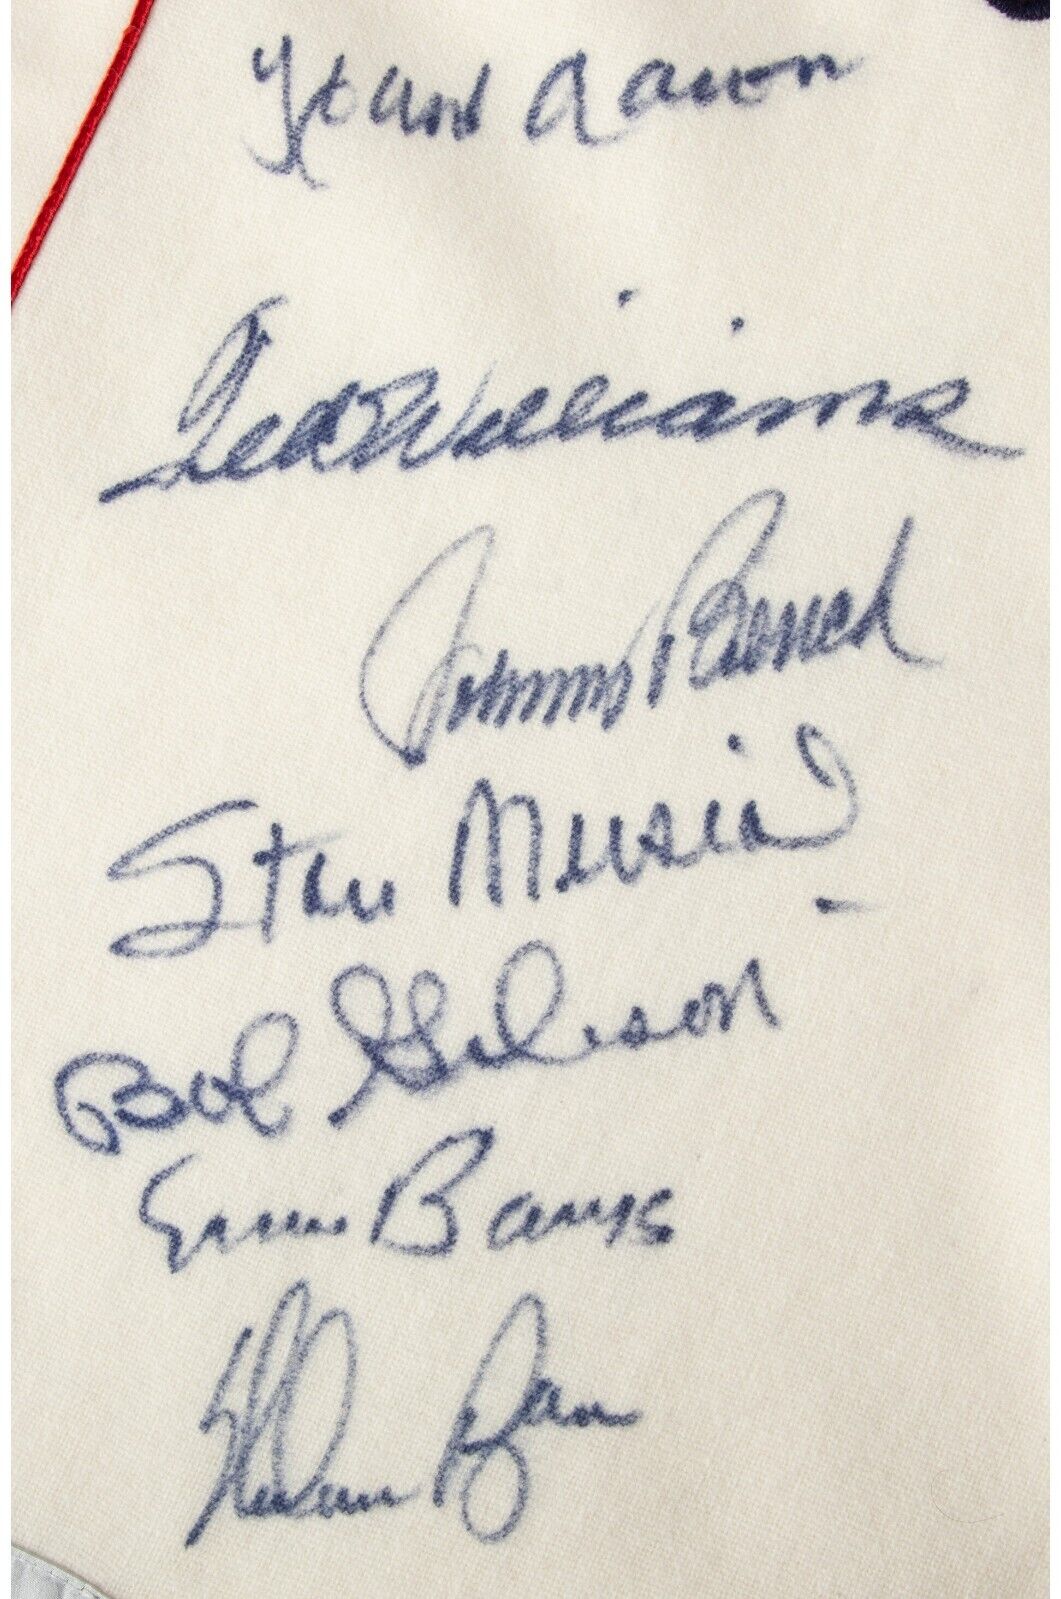 Hank Aaron
Ted Williams
Johnny Bench
Stan Musial
Bob Gibson
Ernie Banks
Nolan Ryan